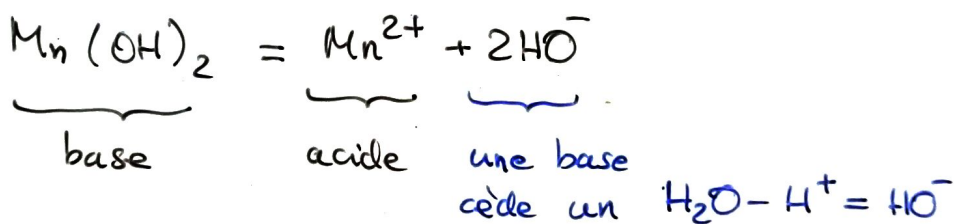 Mn(OH)₂ = Mn²⁺ + 2HO⁻
base acide une base
cède un H₂O - H⁺ = HO⁻